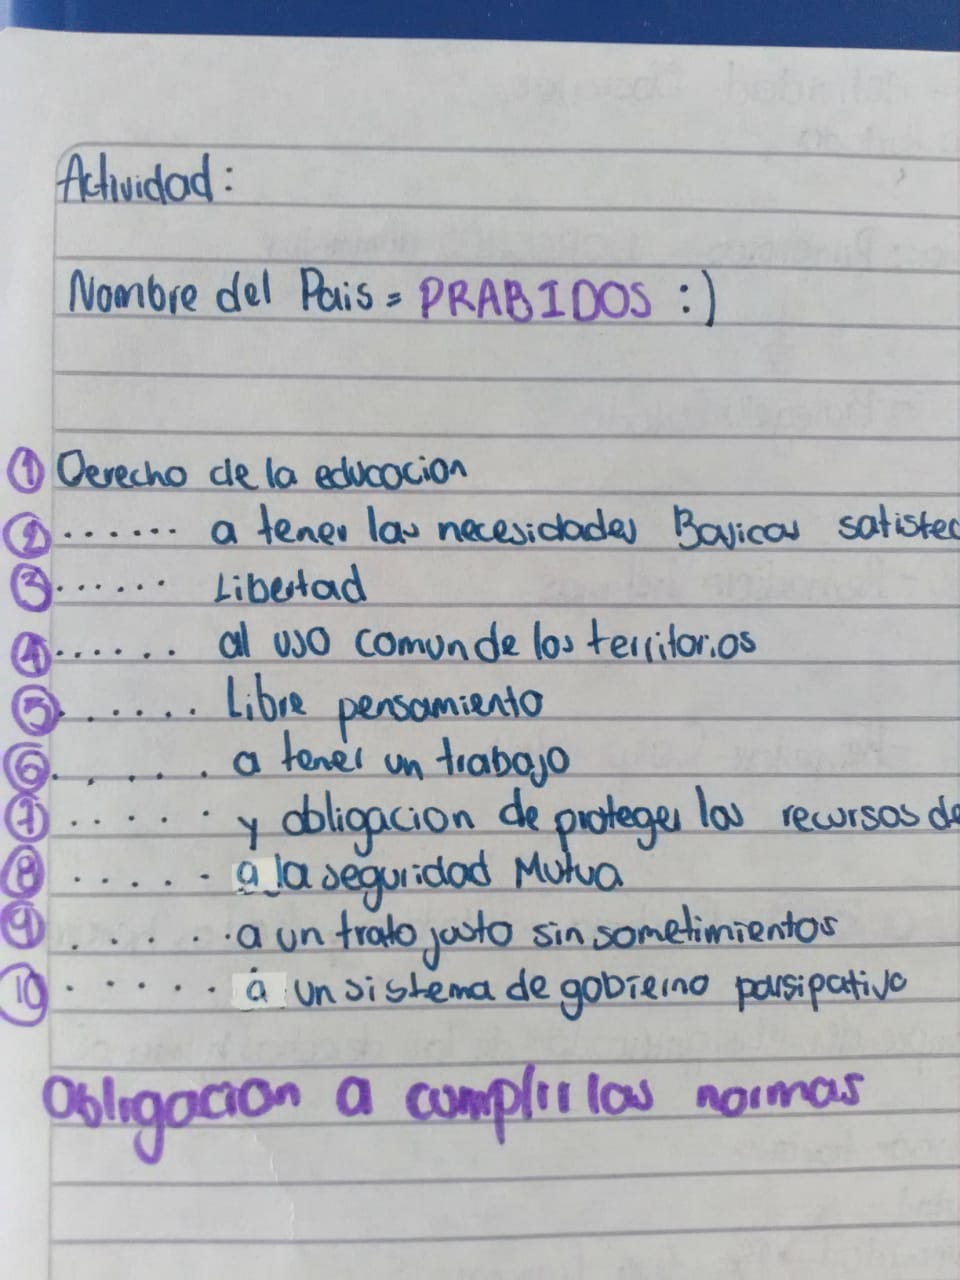 Actividad:
Nombre del Pais = PRABIDOS :)
1 Derecho de la educacion
2 ....... a tener las necesidades Basicas satisfec
3 ...... Libertad
4 ...... al uso comun de los territorios
5 ...... Libre pensamiento
6 ...... a tener un trabajo
7 ..... y obligacion de proteger los recursos de
8 ..... a la seguridad Mutua
9 ..... a un trato justo sin sometimientos
10 ..... a un sistema de gobierno parsipativo
Obligacion a cumplir las normas